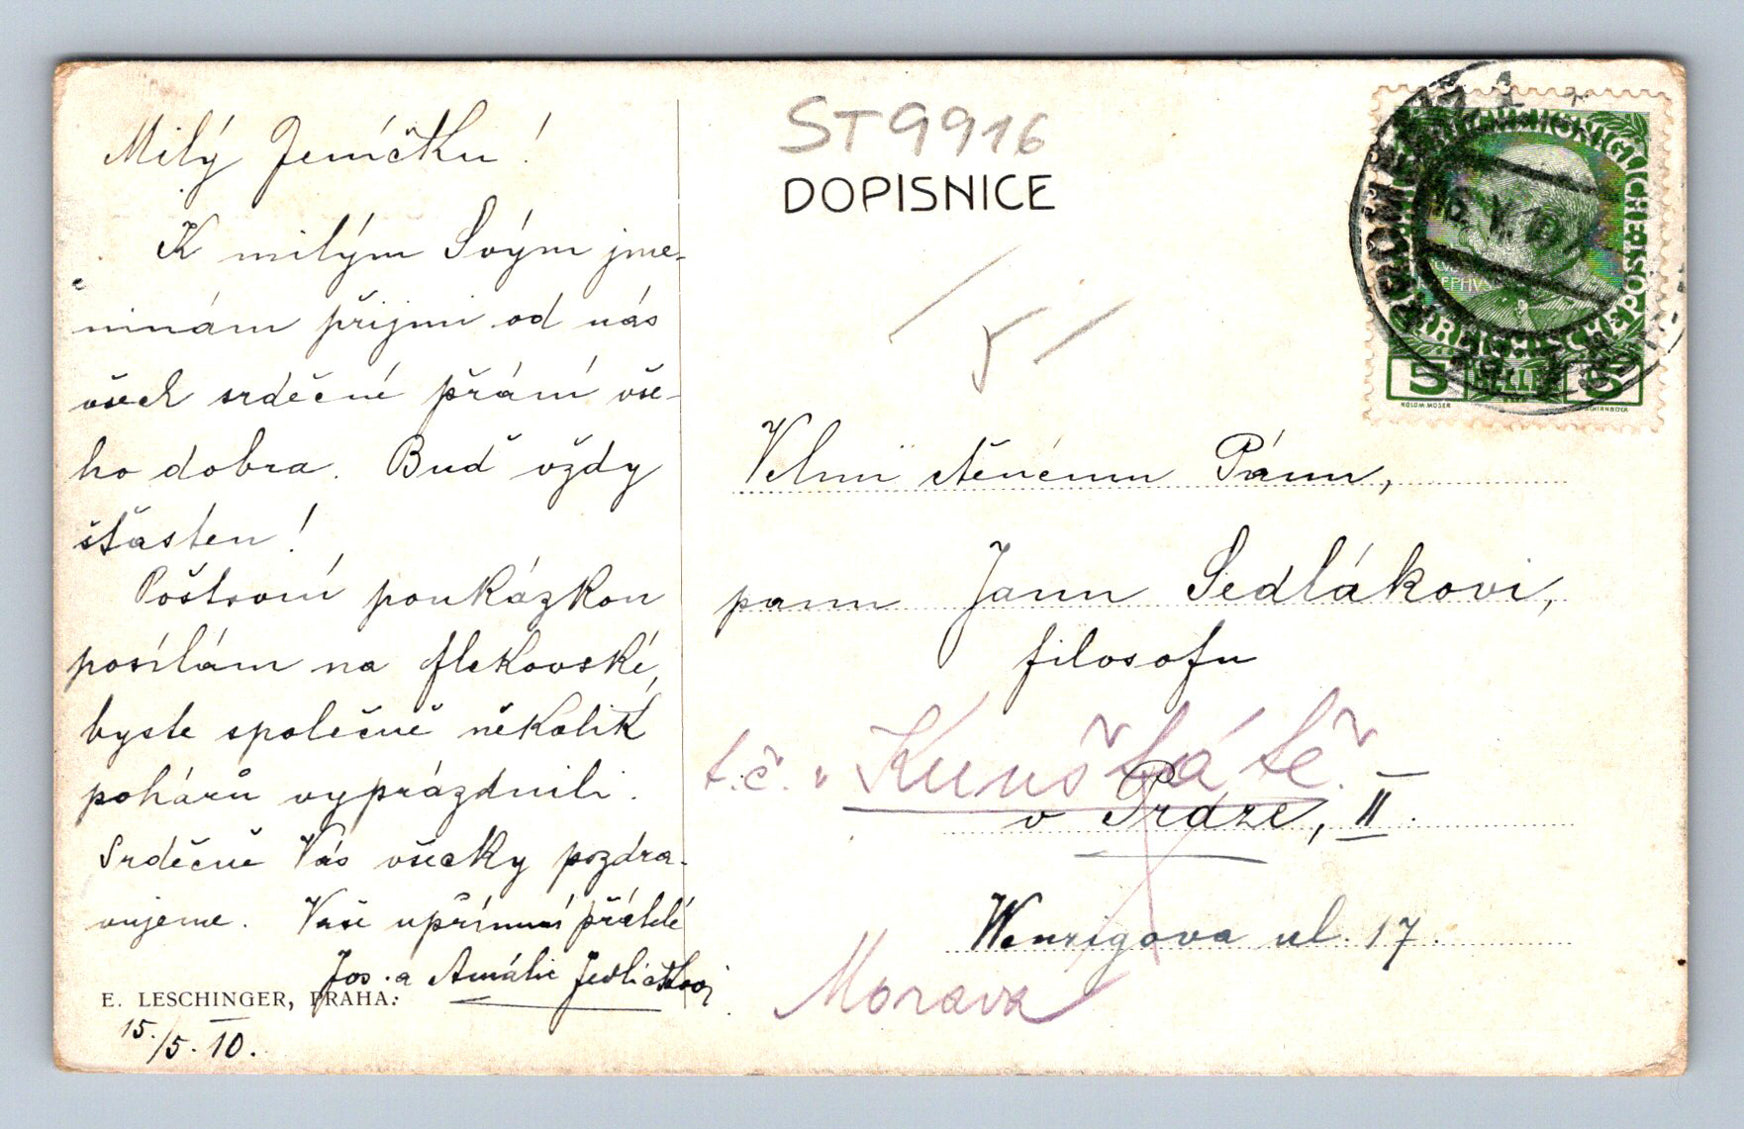 Milý Jeníčku!
K milým Svým jme-
ninám přijmi od nás
všech srdečné přání vše-
ho dobra. Buď vždy
šťasten!
Poštovní poukázkou
posílám na flekovské,
byste společně několik
pohárů vyprázdnili.
Srdečně Vás všecky pozdra-
vujeme. Vaši upřímní přátelé
Jos. a Amálie Jedličkovi
E. LESCHINGER, PRAHA.
15./5. 10.
ST9916
DOPISNICE
5 HELLER 5
KOLOM. MOSER
Velmi ctěnému Pánu,
panu Janu Sedlákovi,
filosofu
t.č. v Kunštátě
v Praze, II.
Wenzigova ul. 17.
Morava